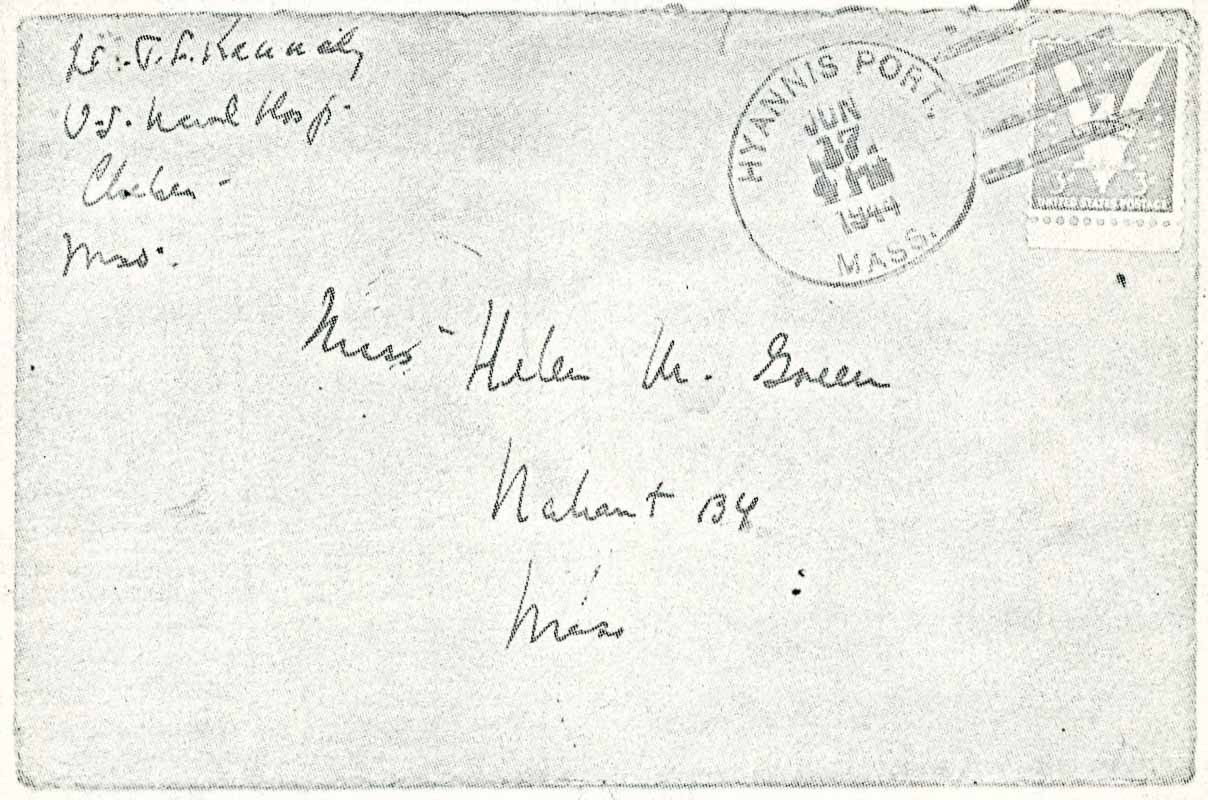 Lt. J. F. Kennedy
U.S. Naval Hosp.
Chelsea -
Mass.
HYANNIS PORT.
JUN
17
4 PM
1944
MASS.
3¢ 3¢
UNITED STATES POSTAGE
Miss Helen M. Green
Nahant
Mass